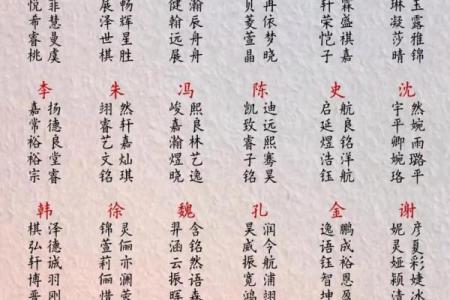 悦菲 畅 瀚 贝冉 轩霖 琳玉
希慧 展辉 健辰 菱依 荣盛 凝露
睿曼 泽星 翰舟 萱梦 恺祺 莎雅
桃虞 世胜 远舟 晶晓 子嘉 晴锦
棋 展
李 朱 冯 陈 史 沈
嘉扬 翊然 峻熙 凯迪 启航 宇然
常德 睿轩 嘉良 致远 延良 平婉
裕良 艺嘉 瀚林 睿熙 煜铭 卿雨
裕堂 文灿 煜艺 子骞 浩洋 婉路
宗睿 铭琪 晓逸 铭昊 钰航 珞平
韩 徐 魏 孔 金 谢
棋泽 锦灵 羿含 昊润 逸鹏 妮彦
弘德 萱俪 涵铭 威令 语成 灵夏
轩诚 莉亦 云然 振航 钰裕 娅彩
博羽 俪澜 振语 宽浦 智恩 颖婕